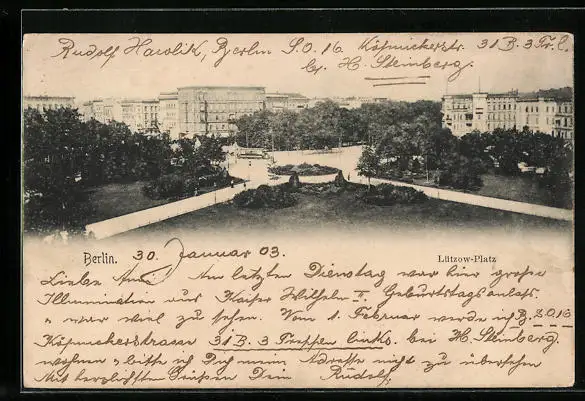 Rudolf Harolik, Berlin S.O. 16 Köpnickerstr. 31 B. 3 Tr. l.
b/ H. Steinberg.
Berlin. 30. Januar 03. Lützow-Platz
Liebe Am Am letzten Dienstag war hier große
Illumination aus Kaiser Wilhelm II. Geburtstagsanlaß.
u war viel zu sehen. Vom 1. Februar werde ich B. S.O. 16
Köpnickerstrasse 31 B. 3 Treppen links. bei H. Steinberg
wohnen u bitte ich Dich mein Adresse nicht zu übersehen
Mit herzlichsten Grüßen Dein Rudolf,